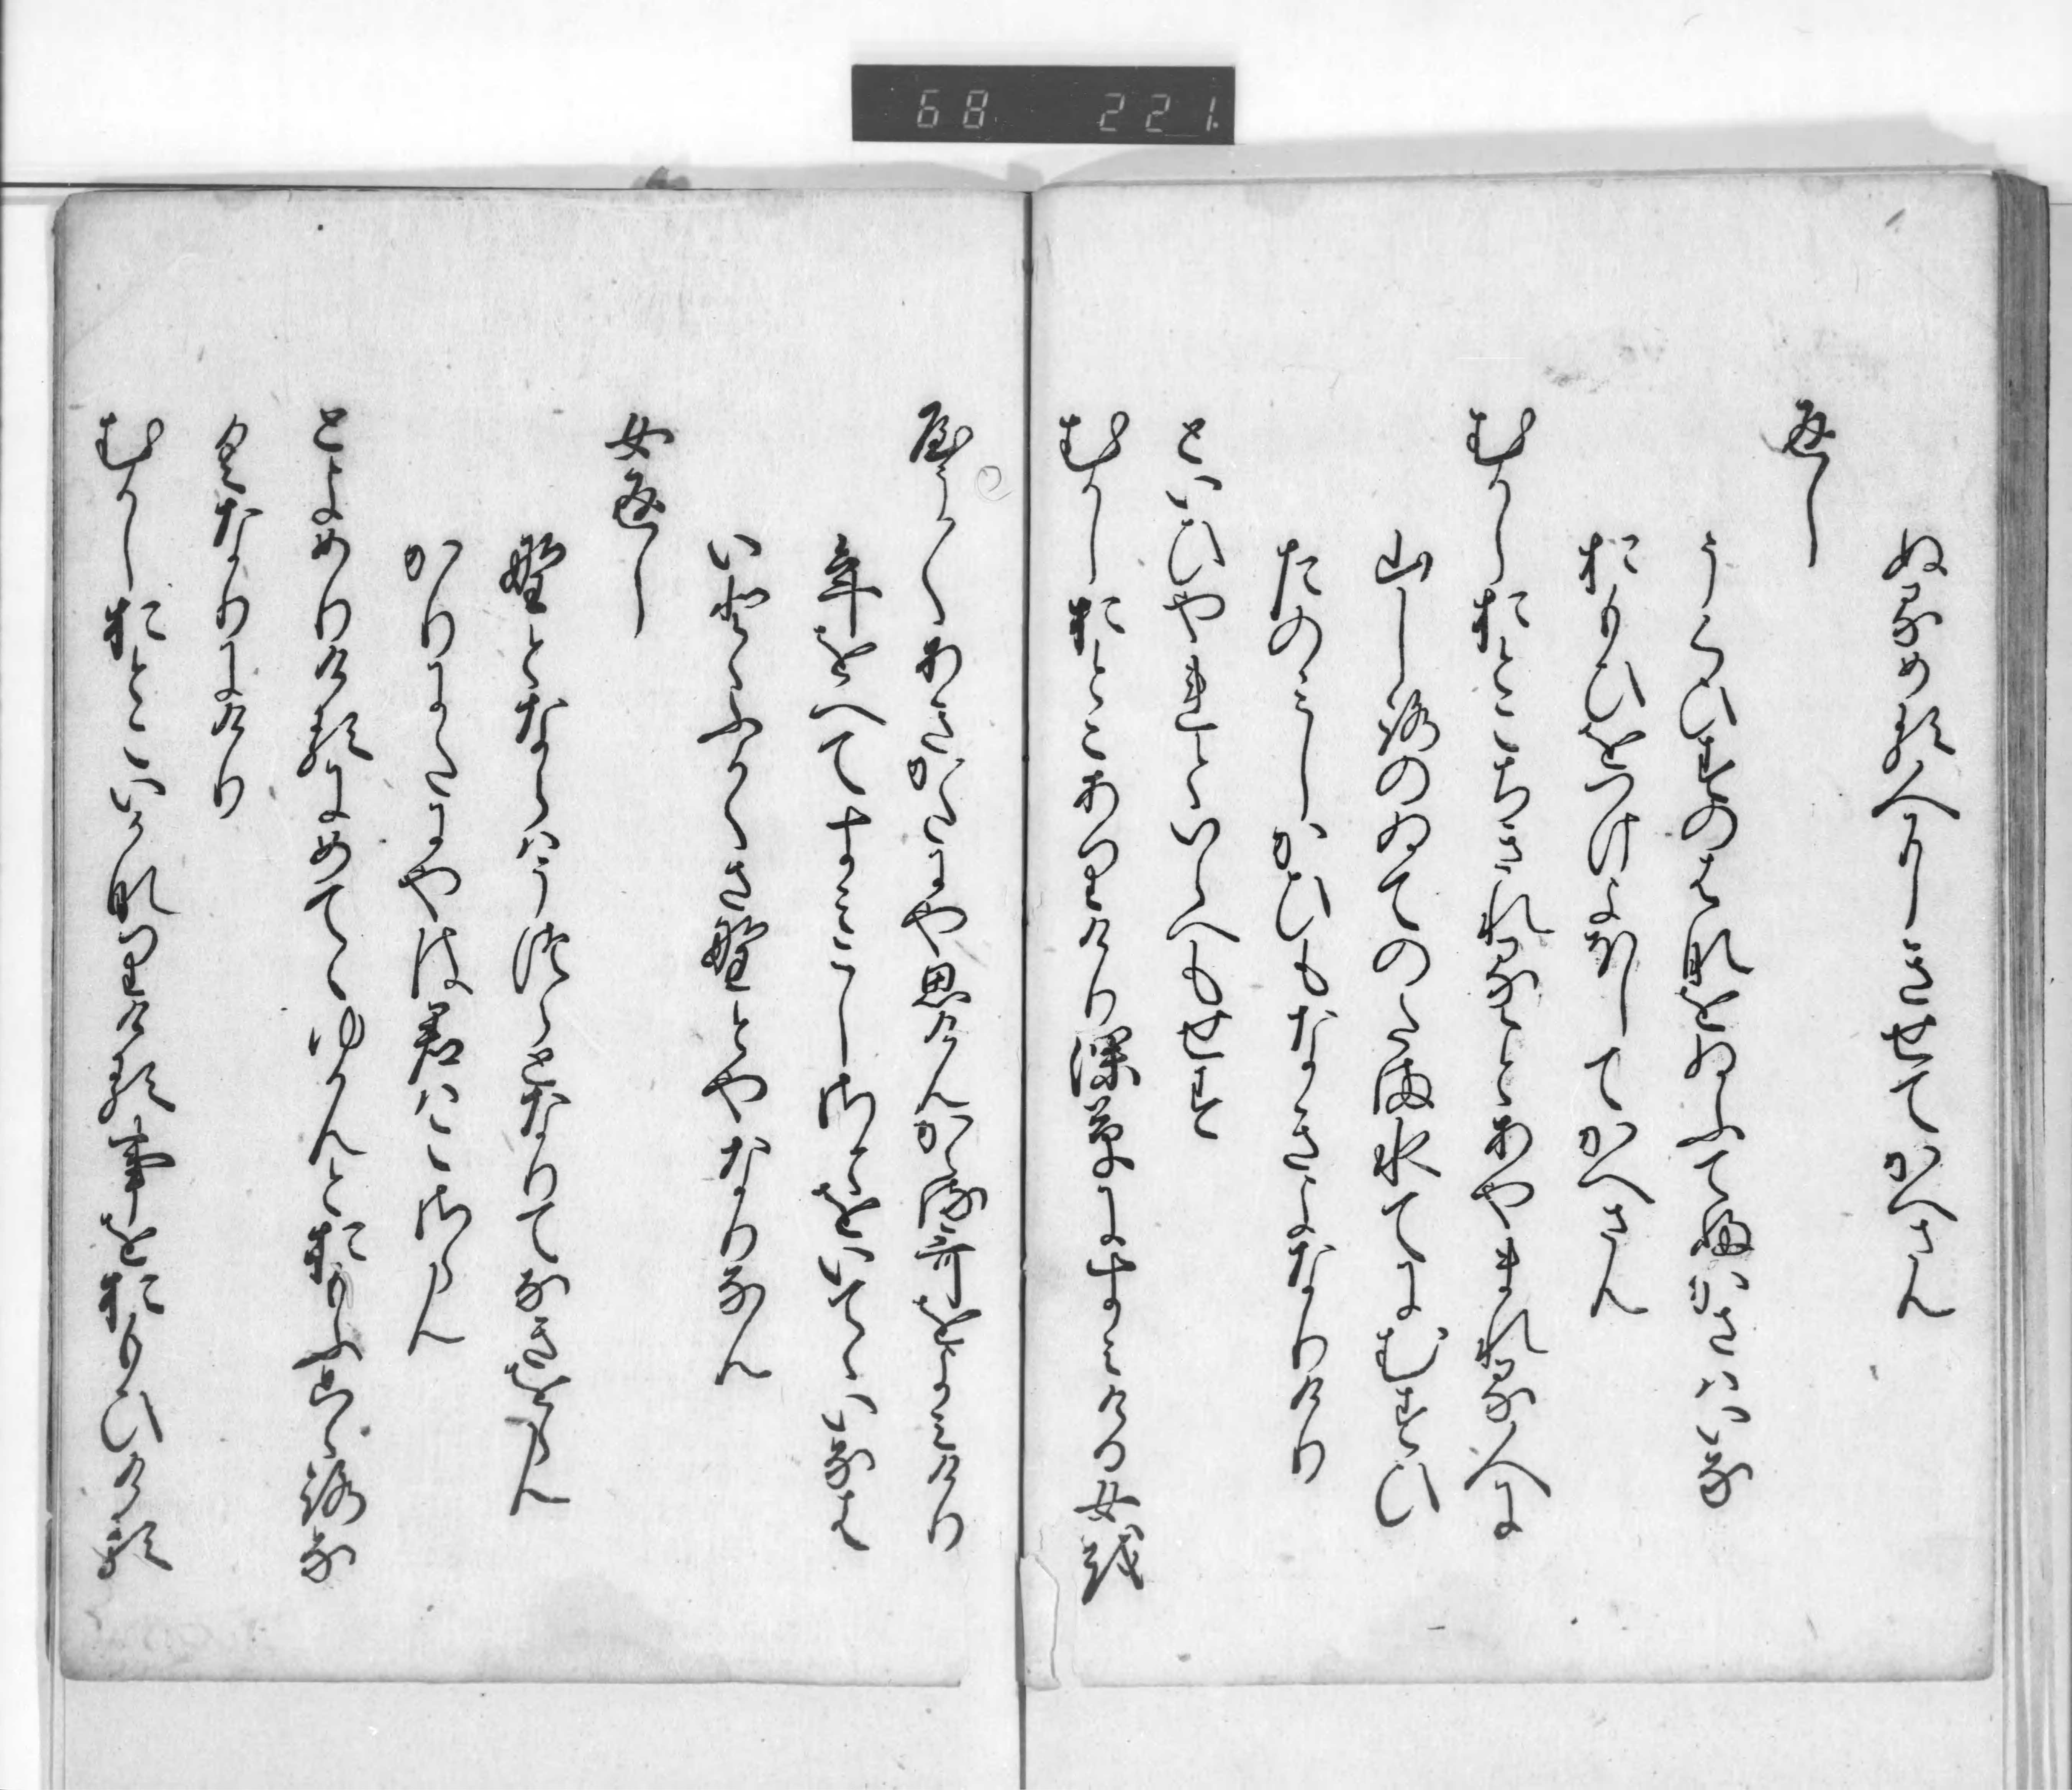 68 221
ぬるめる人にきせてかへさん
返し
うくひすのはなをぬふてふかさはいな
おもひをつけよほしてかへさん
むかしおとこちきれることあやまれる人に
山しろのゐてのたま水てにむすひ
たのみしかひもなきよなりけり
といひやれといらへもせす
むかしおとこありけり深草にすみける女を
やう〳〵あきかたにや思けんかゝる哥をよみけり
年をへてすみこしさとをいてゝいなは
いとゝふかくさ野とやなりなん
女返し
野とならはうつらとなりてなきをらん
かりにたにやは君はこさらん
とよめりけるにめてゝゆかんとおもふこゝろな
くなりにけり
むかしおとこいかなりける事をおもひける